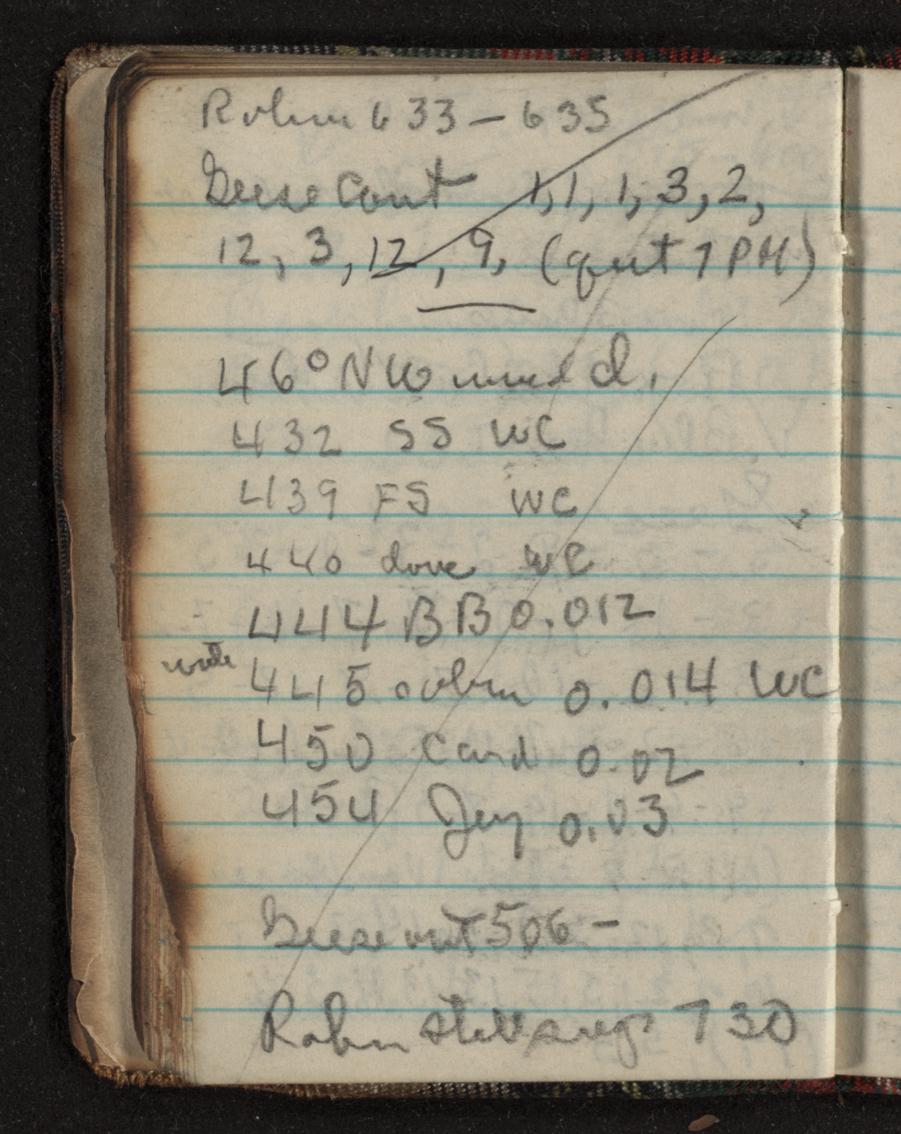 Robin 633 - 635
Geese Count 1, 1, 1, 3, 2,
12, 3, 12, 9, (quit 7 PM)
46° NW wind d.
432 SS WC
439 FS WC
440 dove WC
444 BB 0.012
wrote 445 robin 0.014 WC
450 Card 0.02
454 Jay 0.03
Geese out 506 -
Robin still sings 730